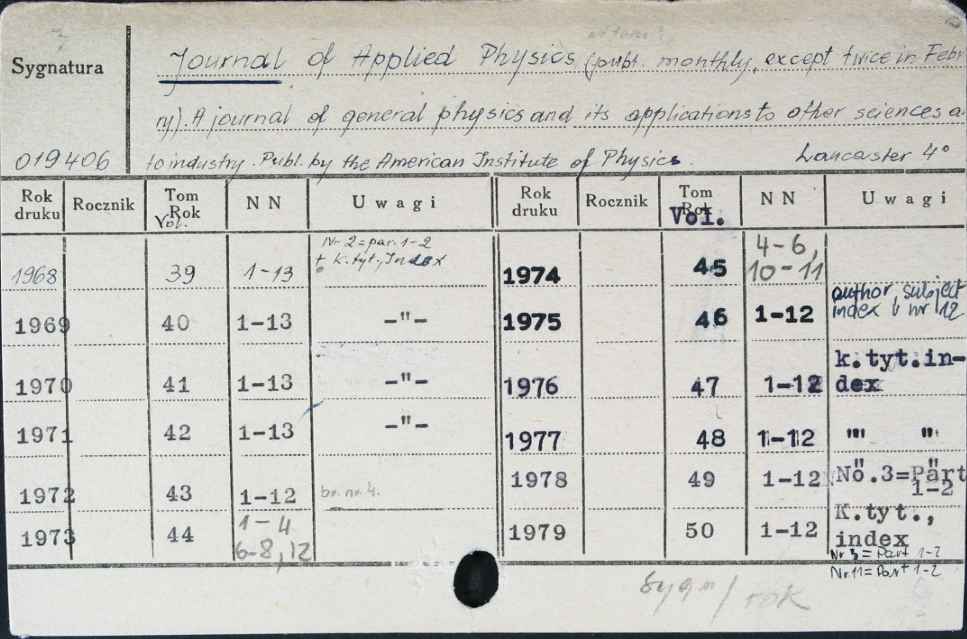 Sygnatura
Journal of Applied Physics (publ. monthly, except twice in Febr
ry). A journal of general physics and its applications to other sciences a
019406 to industry. Publ. by the American Institute of Physics. Lancaster 4°
Rok druku Rocznik Tom Rok Vol. NN Uwagi Rok druku Rocznik Tom Rok Vol. NN Uwagi
1968 39 1-13 Nr 2=par. 1-2 + k.tyt., Index 1974 45 4-6, 10-11
1969 40 1-13 -"- 1975 46 1-12 author, subject index v nr 12
1970 41 1-13 -"- 1976 47 1-12 k.tyt.in-dex
1971 42 1-13 -"- 1977 48 1-12 "" ""
1972 43 1-12 br. nr. 4. 1978 49 1-12 No.3=Part 1-2
1973 44 1-4 6-8, 12 1979 50 1-12 K.tyt., index
Nr 3 = Part 1-2
Nr. 11 = Part 1-2
sygn/rok